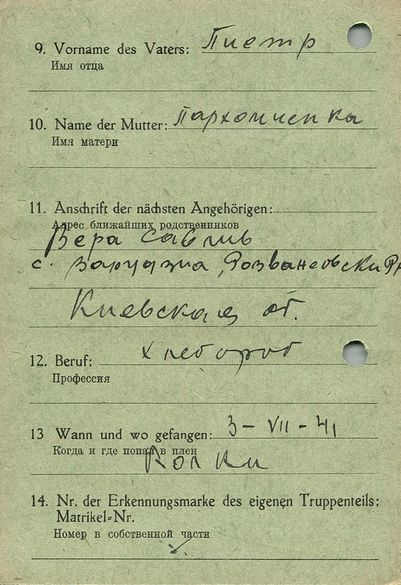 9. Vorname des Vaters: Пиетр
Имя отца
10. Name der Mutter: Пархомиенка
Имя матери
11. Anschrift der nächsten Angehörigen:
Адрес ближайших родственников
Вера Савлив
с.
Киевская об.
12. Beruf: хлебороб
Профессия
13 Wann und wo gefangen: 3- VII - 41
Когда и где попал в плен
Колки
14. Nr. der Erkennungsmarke des eigenen Truppenteils:
Matrikel=Nr.
Номер в собственной части